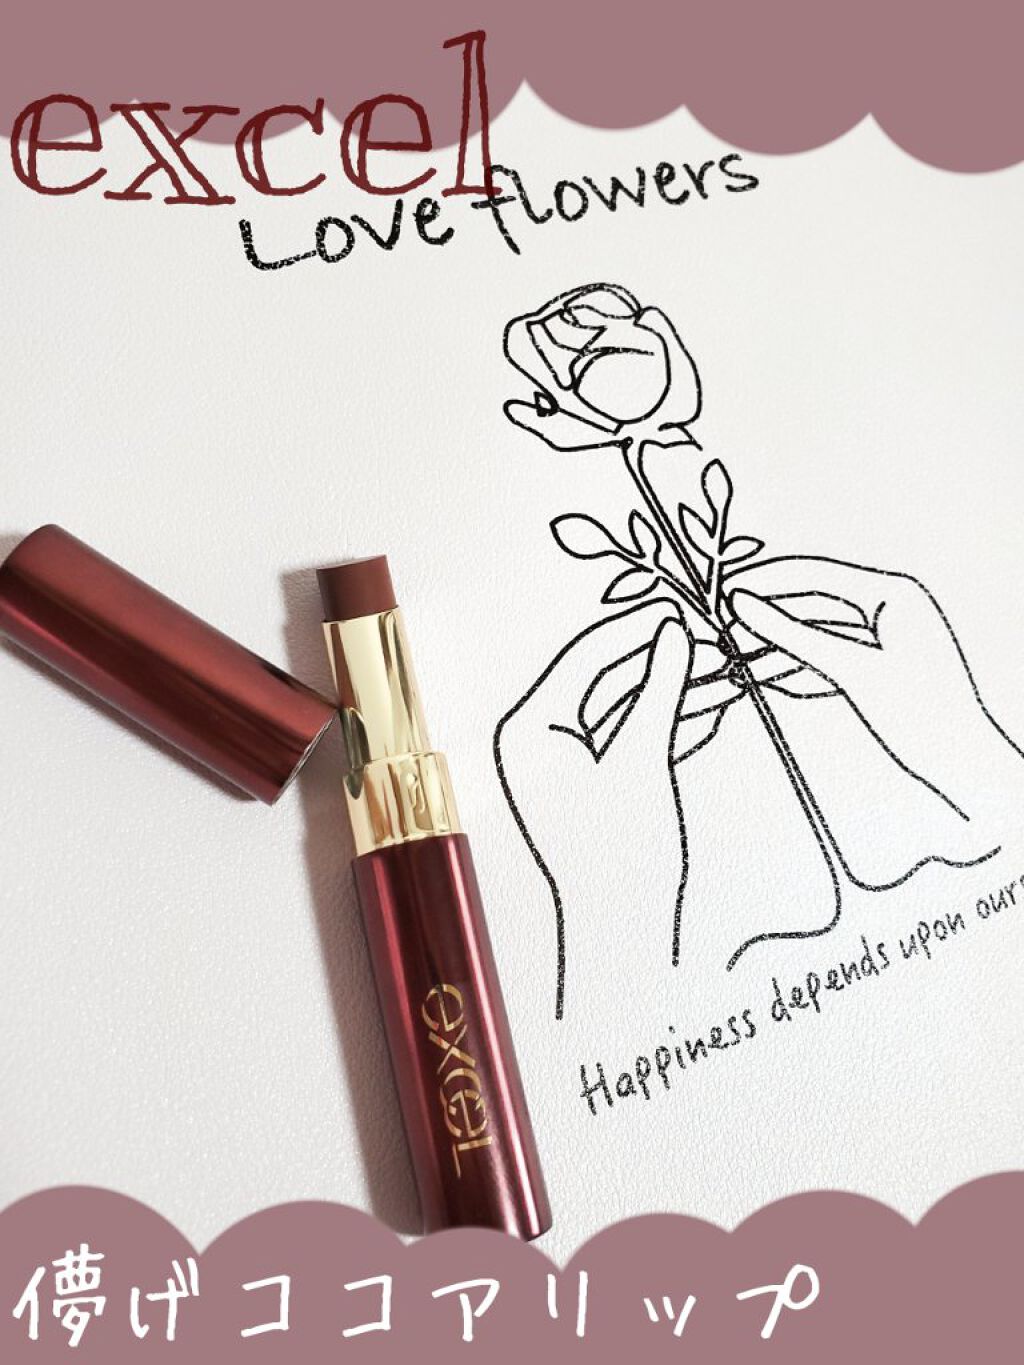 excel
Love flowers
Happiness depends upon
excel
儚げココアリップ